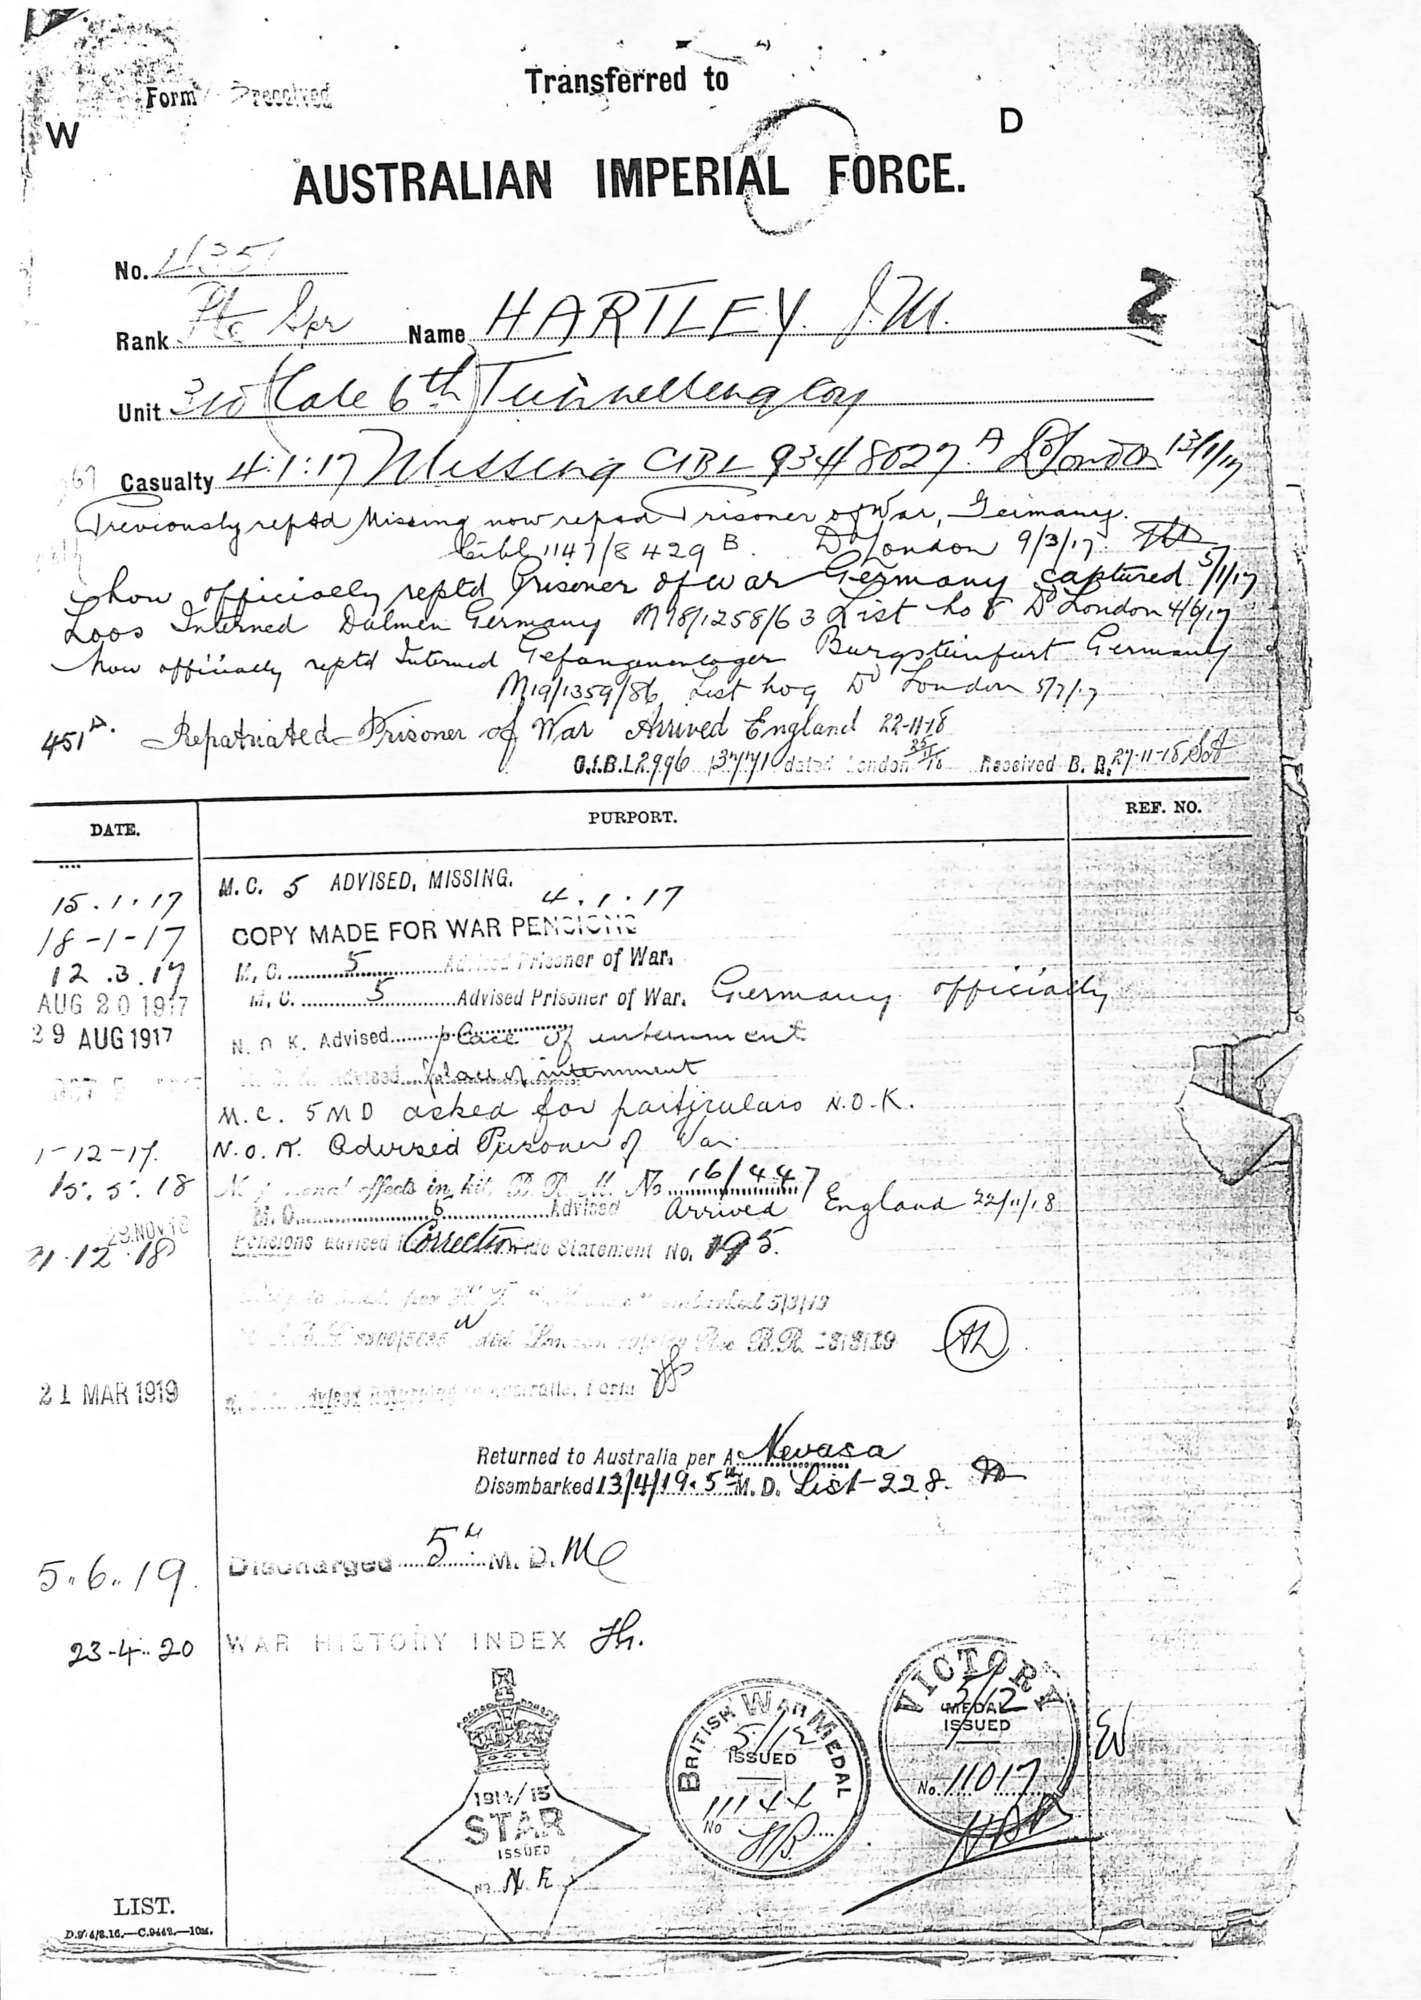 Transferred to
Form received
W D
AUSTRALIAN IMPERIAL FORCE.
No. 4351
Rank Pte Spr Name HARTLEY. J.M.
Unit 3rd (late 6th) Tunnelling Coy
Casualty 4:1:17 Missing CIBL 934/8027 A Dd London 13/1/17
Previously reptd Missing now repsd Prisoner of War, Germany.
Cibl 1147/8429 B. Dd London 9/3/17.
Now officially reptd Prisoner of war Germany captured 5/1/17
Loos Interned Dulmen Germany M18/1258/63 List No 8 Dd London 4/6/17
Now officially reptd Interned Gefangenenlager Burgsteinfurt Germany
M19/1359/86 List No 9 Dd London 5/7/17
451A. Repatriated Prisoner of War Arrived England 22-11-18
C.I.B.L2996 137/71 dated London 25/11/18 Received B. R. 27-11-18
DATE. PURPORT. REF. NO.
15.1.17 M.C. 5 ADVISED, MISSING. 4.1.17
18-1-17 COPY MADE FOR WAR PENSIONS
12.3.17 M.C. 5 Advised Prisoner of War.
AUG 20 1917 M.C. 5 Advised Prisoner of War. Germany officially
29 AUG 1917 N.O.K. Advised place of internment
Advised place of internment
M.C. 5 MD asked for particulars N.O.K.
1-12-17. N.O.K. Advised Prisoner of War.
15.5.18 effects in kit. B.R.M. No 16/447
29.NOV 18 M.C. 5 Advised Arrived England 22/11/18
21.12.18 Pensions advised Correction Statement No. 195.
embarked 5/3/19
W
21 MAR 1919 Advised Returning to Australia, Form
Returned to Australia per A. Nevasa
Disembarked 13/4/19. 5th M.D. List 228.
5.6.19. Discharged 5th M.D.
23-4-20 WAR HISTORY INDEX
1914/15
STAR
ISSUED
No. N.E.
BRITISH WAR MEDAL
5/12
ISSUED
11144
No
VICTORY
5/12
MEDAL
ISSUED
No. 11017
LIST.
D.974/8.16.—C.9448.—10M.